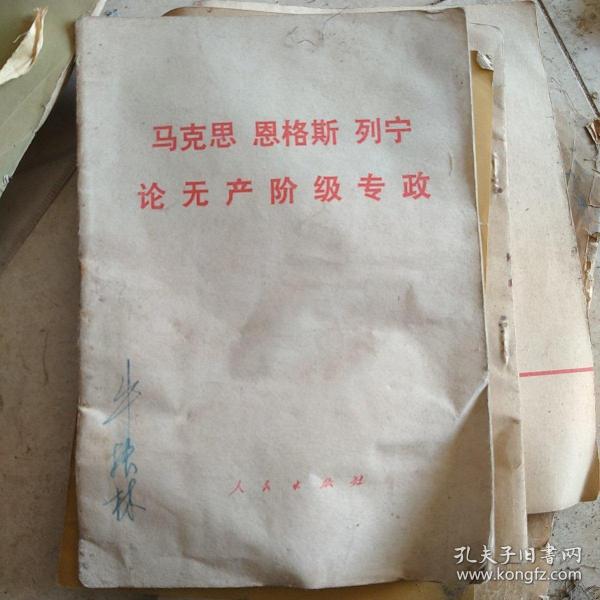 马克思 恩格斯 列宁
论无产阶级专政
牛
林
人民出版社
孔夫子旧书网
www.kongfz.com